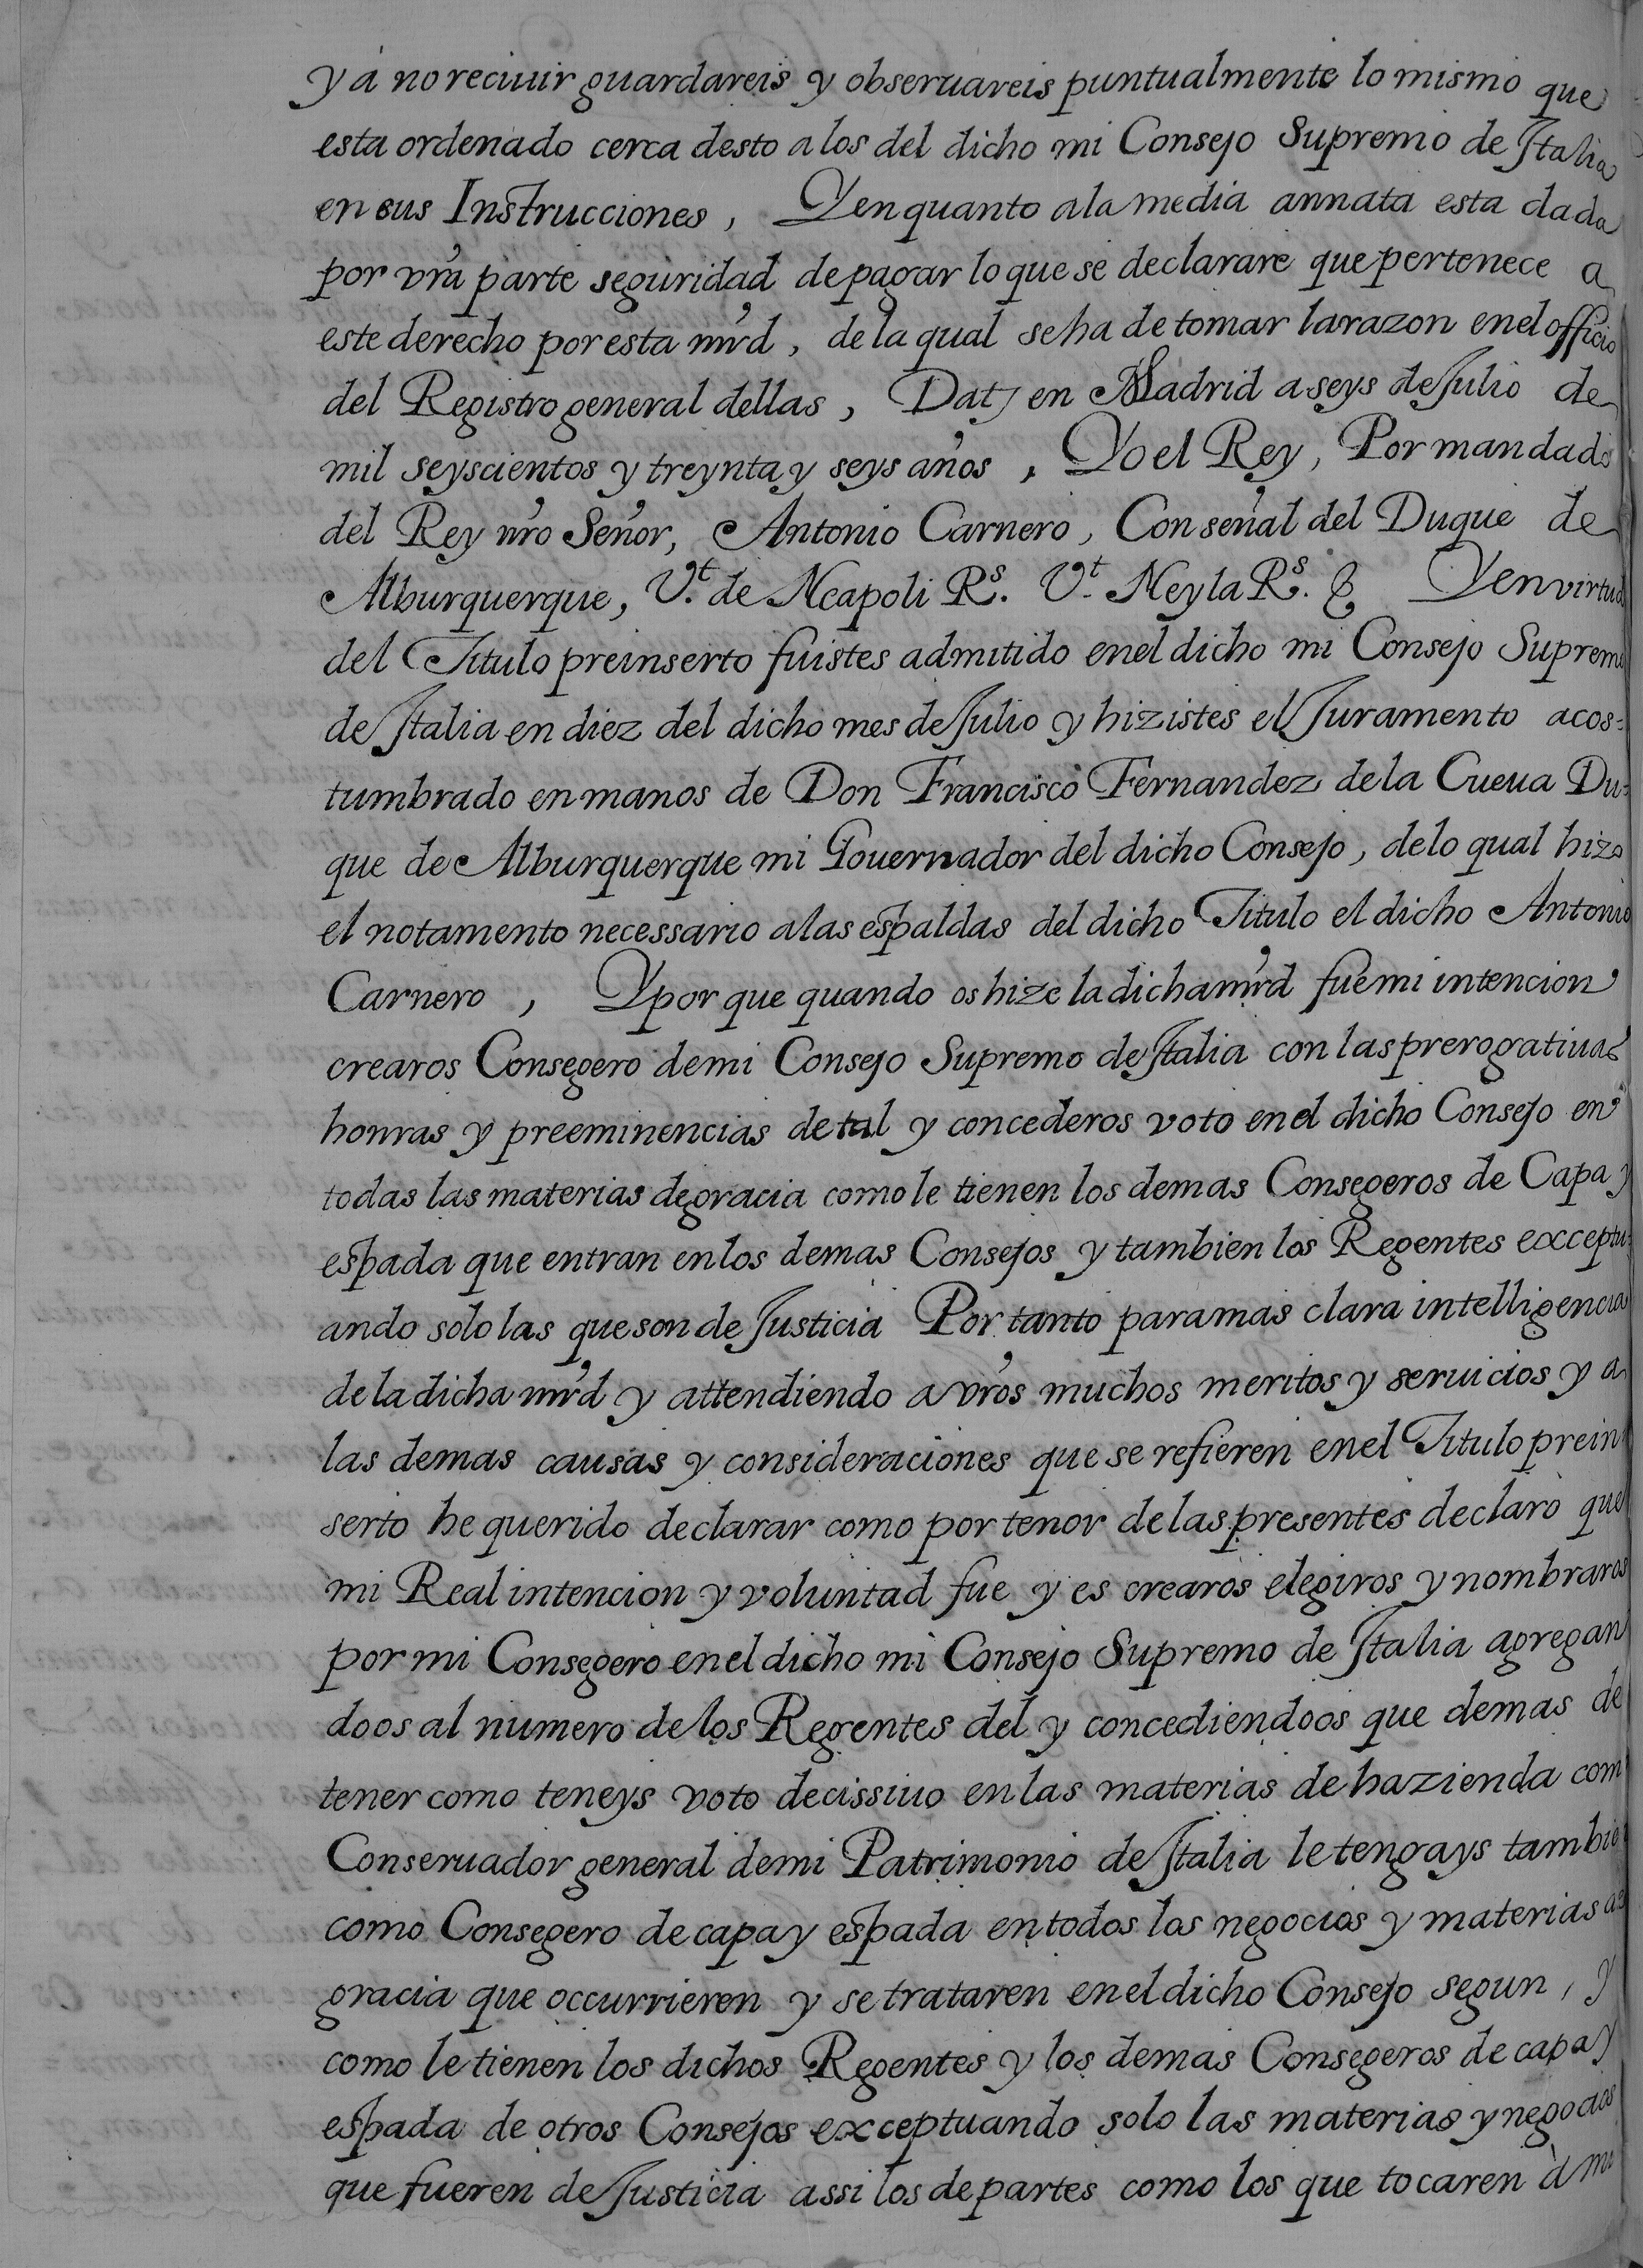 y á no reciuir guardareis y obseruareis puntualmente lo mismo que
esta ordenado cerca desto a los del dicho mi Consejo Supremo de Italia
en sus Instrucciones, Y en quanto a la media annata esta dada
por vr̃a parte seguridad de pagar lo que se declarare que pertenece a
este derecho por esta mr̃d, de la qual se ha de tomar la razon en el officio
del Registro general dellas, Dat, en Madrid a seys de Julio de
mil seyscientos y treynta y seys años, Yo el Rey, Por mandado
del Rey nr̃o Señor, Antonio Carnero, Con señal del Duque de
Alburquerque, V.t de Neapoli R.s V.t Neyla R.s & Y en virtud
del Titulo preinserto fuistes admitido en el dicho mi Consejo Supremo
de Italia en diez del dicho mes de Julio y hizistes el Juramento acos=
tumbrado en manos de Don Francisco Fernandez de la Cueua Du=
que de Alburquerque mi Gouernador del dicho Consejo, de lo qual hizo
el notamento necessario a las espaldas del dicho Titulo el dicho Antonio
Carnero, Y por que quando os hize la dicha mr̃d fue mi intencion
crearos Consegero de mi Consejo Supremo de Italia con las prerogatiuas
honras y preeminencias de tal y concederos voto en el dicho Consejo en
todas las materias de gracia como le tienen los demas Consegeros de Capa y
espada que entran en los demas Consejos y tambien los Regentes exceptu=
ando solo las que son de Justicia Por tanto para mas clara intelligencia
de la dicha mr̃d y attendiendo a vr̃os muchos meritos y seruicios y a
las demas causas y consideraciones que se refieren en el Titulo prein
serto he querido declarar como por tenor de las presentes declaro que
mi Real intencion y voluntad fue y es crearos elegiros y nombraros
por mi Consegero en el dicho mi Consejo Supremo de Italia agregan
doos al numero de los Regentes del y concediendoos que demas de
tener como teneys voto decissiuo en las materias de hazienda com
Conseruador general de mi Patrimonio de Italia le tengays tambie
como Consegero de capa y espada en todos los negocios y materias
gracia que occurrieren y se trataren en el dicho Consejo segun, y
como le tienen los dichos Regentes y los demas Consegeros de capa y
espada de otros Consejos exceptuando solo las materias y negocios
que fueren de Justicia assi los de partes como los que tocaren à mi